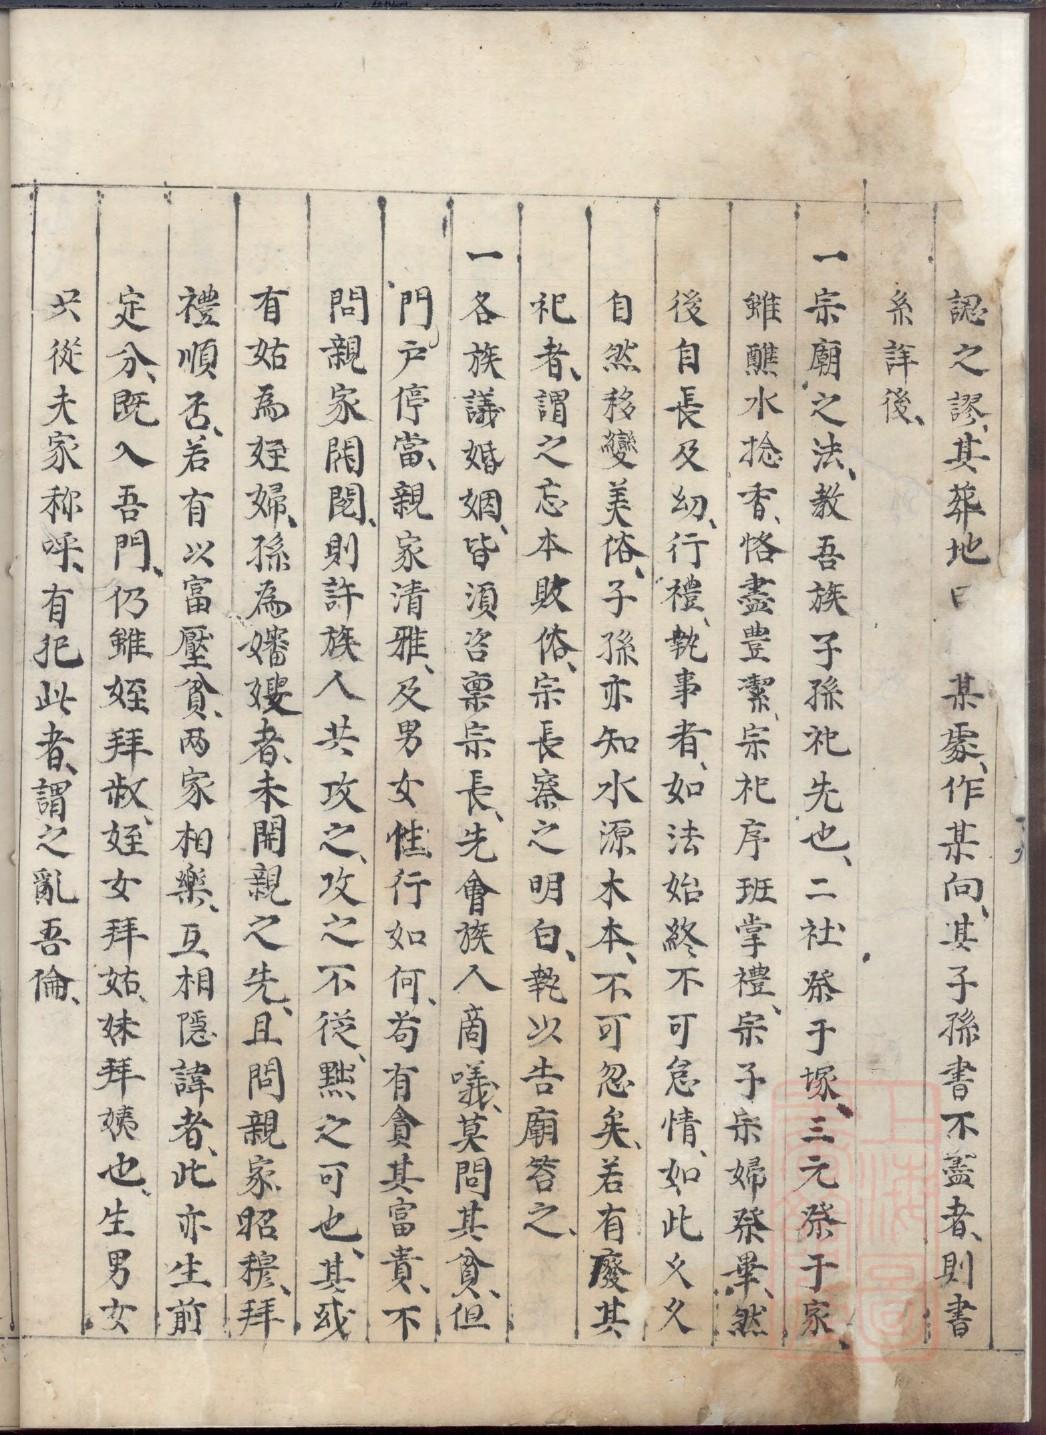 認之謬、其葬地曰　某處、作某向、其子孫書不蓋者、則書
糸詳後、
一宗廟之法、教吾族子孫祀先也、二社祭于塚、三元祭于家、
雖醮水捻香、恪盡豊潔、宗祀序班掌禮、宗子宗婦祭畢、然
後自長及幼、行禮、執事者、如法始終不可怠情、如此久久
自然移變美俗、子孫亦知水源木本、不可忽矣、若有廢其
祀者、謂之忘本敗俗、宗長察之明白、執以告廟笞之、
一各族議婚姻、皆須咨稟宗長、先會族人商嘰、莫問其貧、但
門户停當、親家清雅、及男女性行如何、苟有貪其富貴、不
問親家閥閱、則許族人共攻之、攻之不從、黜之可也、其或
有姑為姪婦、孫為嬸嫂者、未開親之先、且問親家昭穆、拜
禮順否、若有以富壓貧、両家相樂、互相隱諱者、此亦生前
定分、既入吾門、仍雖姪拜叔、姪女拜姑、妹拜姨也、生男女
只從夫家称呼、有犯此者、謂之亂吾倫、